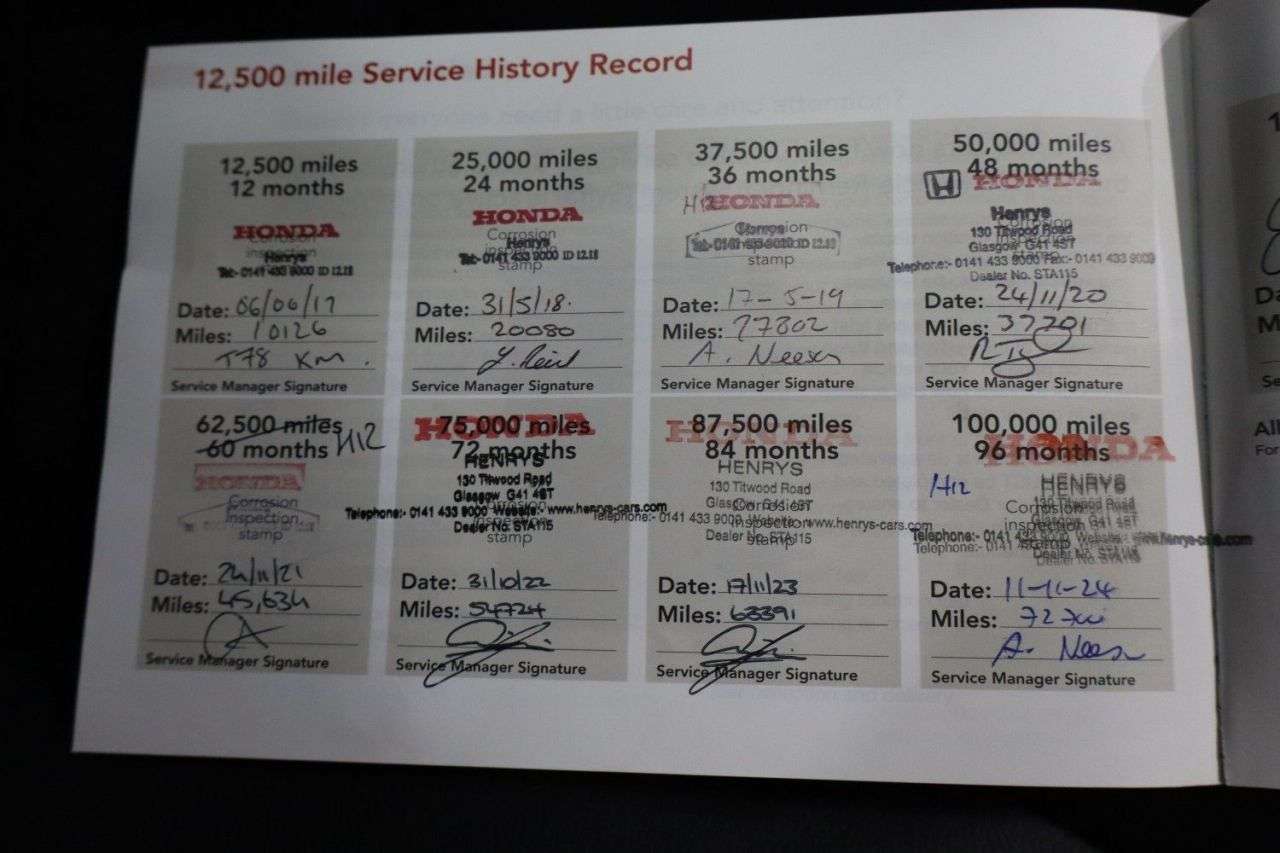 12,500 mile Service History Record
12,500 miles
12 months
HONDA
Corrosion
inspection
Henrys
Tel:- 0141 433 9000 ID 12.18
Date: 06/06/17
Miles: 10126
T78 Km.
Service Manager Signature
25,000 miles
24 months
HONDA
Corrosion
inspection
Henrys
Tel:- 0141 433 9000 ID 12.18
stamp
Date: 31/5/18.
Miles: 20080
Service Manager Signature
37,500 miles
36 months
HONDA
stamp
Date: 17-5-19
Miles:
A. Neeson
Service Manager Signature
50,000 miles
48 months
HONDA
Henrys
130 Titwood Road
Glasgow G41 4ST
Telephone:- 0141 433 9000 Fax:- 0141 433 9009
Dealer No. STA115
Date: 24/11/20
Miles: 37201
Service Manager Signature
62,500 miles
60 months H12
HONDA
Corrosion
Inspection
stamp
Date: 24/11/21
Miles: 45,634
Service Manager Signature
HONDA
75,000 miles
72 months
HENRYS
130 Titwood Road
Glasgow G41 4ST
Telephone:- 0141 433 9000 Website:- www.henrys-cars.com
Dealer No. STA115
stamp
Date: 31/10/22
Miles: 54724
Service Manager Signature
HONDA
87,500 miles
84 months
HENRYS
130 Titwood Road
Glasgow G41 4ST
Corrosion
Telephone:- 0141 433 9000 Website:- www.henrys-cars.com
inspection
Dealer No. STA115
stamp
Date: 17/11/23
Miles: 63391
Service Manager Signature
100,000 miles
96 months
HONDA
H12
HENRYS
130 Titwood Road
Corrosion
Glasgow G41 4ST
inspection
Telephone:- 0141 433 9000 Website:- www.henrys-cars.com
stamp
Dealer No. STA115
Date: 11-11-24
Miles:
A. Neeson
Service Manager Signature